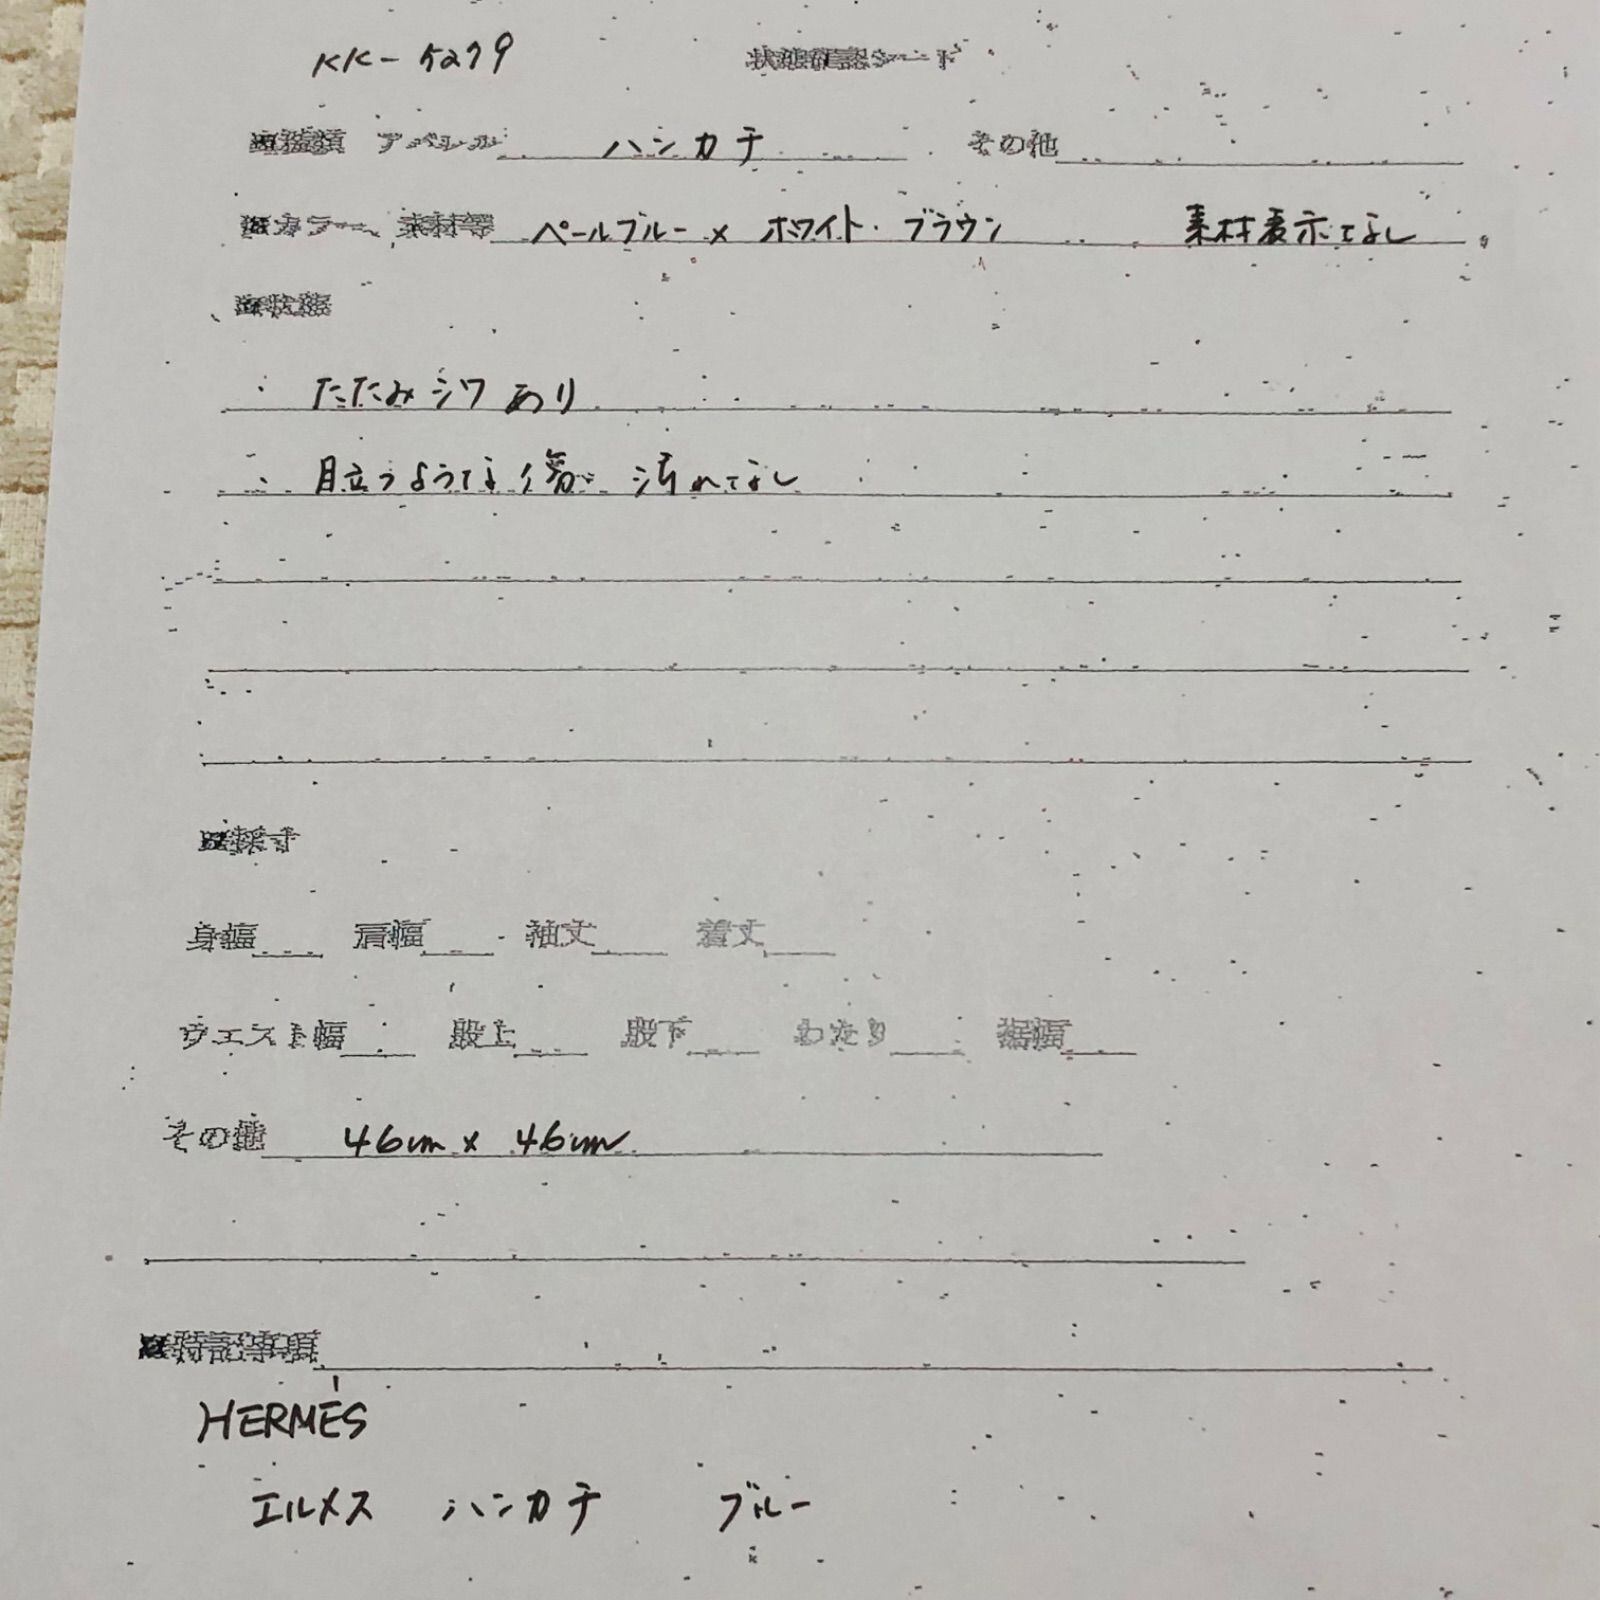 KK-5279 状態確認シート
■種類 アパレル ハンカチ その他
■カラー、素材等 ペールブルー×ホワイト・ブラウン 素材表示なし
■状態
・たたみシワあり
・目立つような傷、汚れなし
■採寸
身幅 肩幅 袖丈 着丈
ウエスト幅 股上 股下 わたり 裾幅
その他 46cm×46cm
■特記事項
HERMÈS
エルメス ハンカチ ブルー